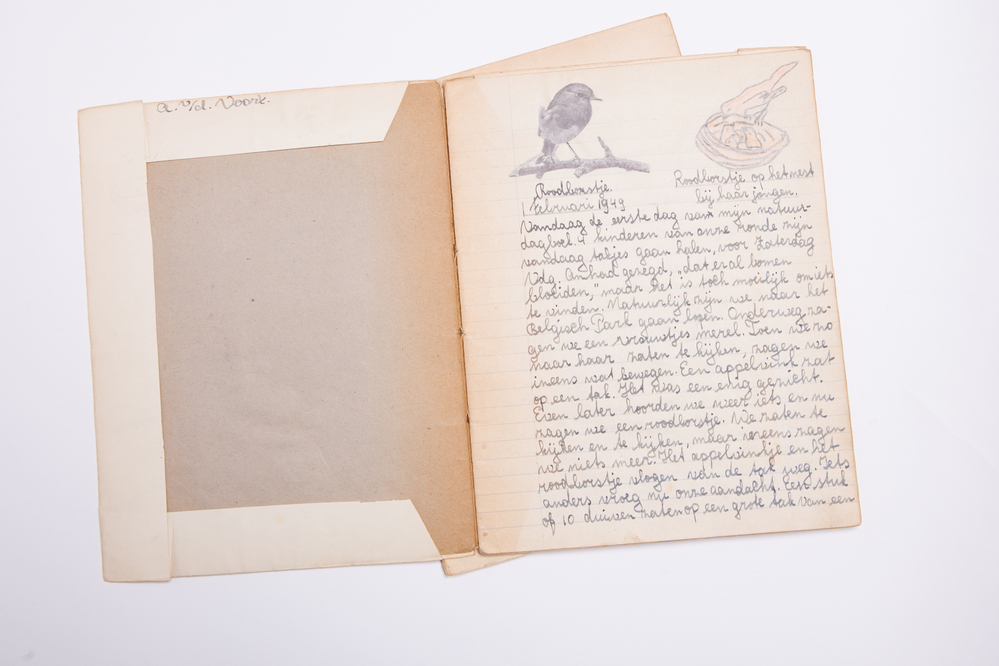 A. v/d. Voort.
Roodborstje.
Roodborstje op het nest
bij haar jongen.
1 februari 1949
Vandaag de eerste dag van mijn natuur-
dagboek. 4 kinderen van onze ronde zijn
vandaag takjes gaan halen, voor Zaterdag
Vdg. An had gezegd, „dat er al bomen
bloeiden," maar het is toch moeilijk om iets
te vinden. Natuurlijk zijn we naar het
Belgisch Park gaan lopen. Onderweg za-
gen we een vrouwtjes merel. Toen we zo
naar haar zaten te kijken, zagen we
ineens wat bewegen. Een appelvink zat
op een tak. Het was een enig gezicht.
Even later hoorden we weer iets en nu
zagen we een roodborstje. We zaten te
kijken en te kijken, maar ineens zagen
we niets meer. Het appelvinkje en het
roodborstje vlogen van de tak weg. Iets
anders vroeg nu onze aandacht. Een stuk
of 10 duiven zaten op een grote tak van een